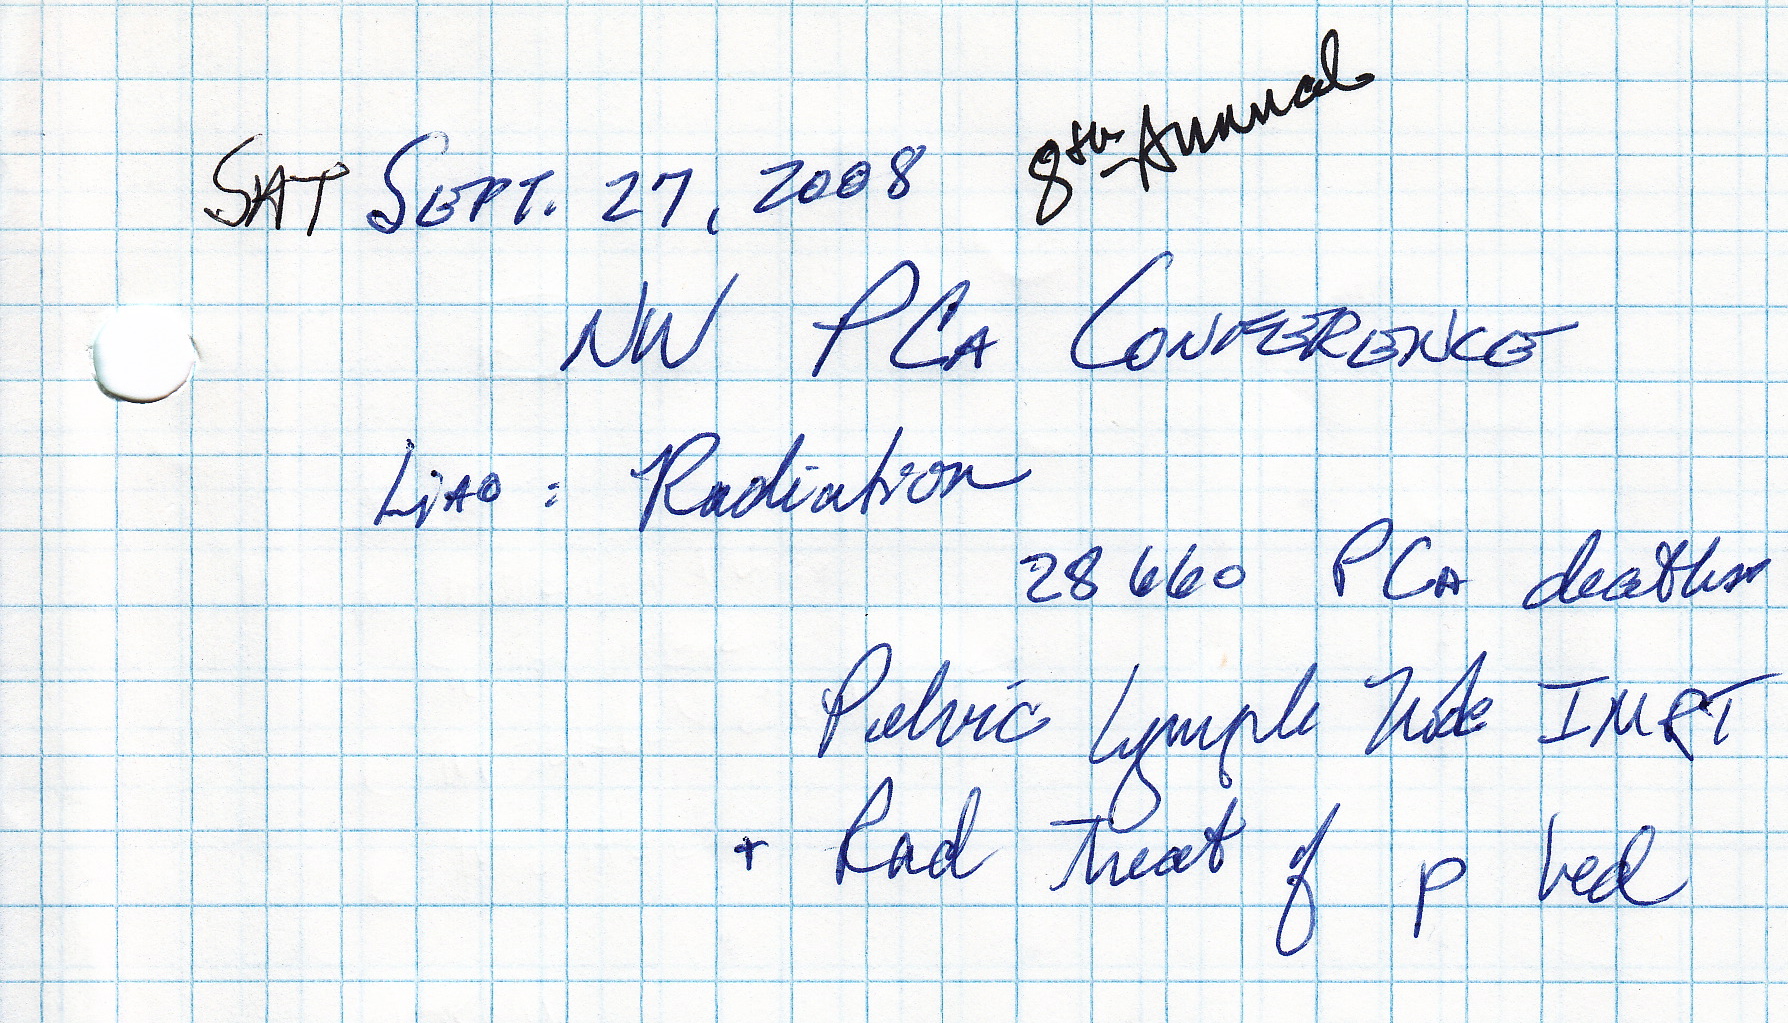 SAT SEPT. 27, 2008 8th Annual
NW PCA CONFERENCE
LiAO : Radiation
28660 PCA deaths
Pelvic Lymph Node IMRT
+ Rad treat of p bed